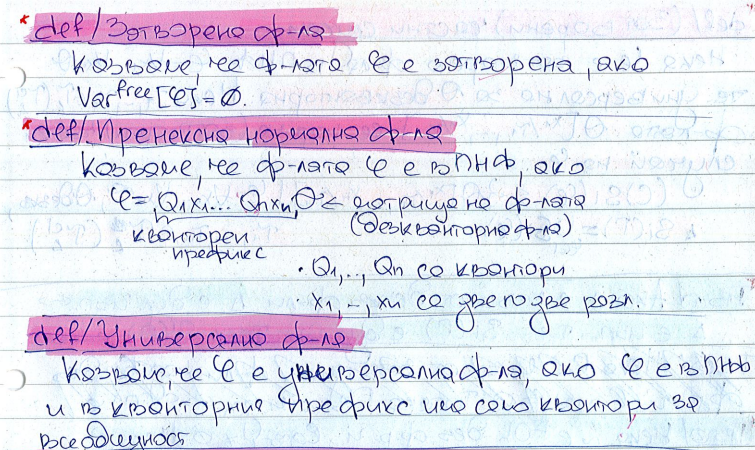 * def/ Затворена ф-ла
Казваме, че ф-лата φ е затворена, ако
Var^free[φ]=∅.
* def/ Пренексна нормална ф-ла
Казваме, че ф-лата φ е в ПНФ, ако
φ = Q₁x₁... Qnxn θ ← матрица на ф-лата
кванторен (безкванторна ф-ла)
префикс
• Q₁,.., Qn са квантори
• x₁,..,xn са две по две разл.
def/ Универсална ф-ла
Казваме, че φ е универсална ф-ла, ако φ е в ПНФ
и в кванторния префикс има само квантори за
всеобщност